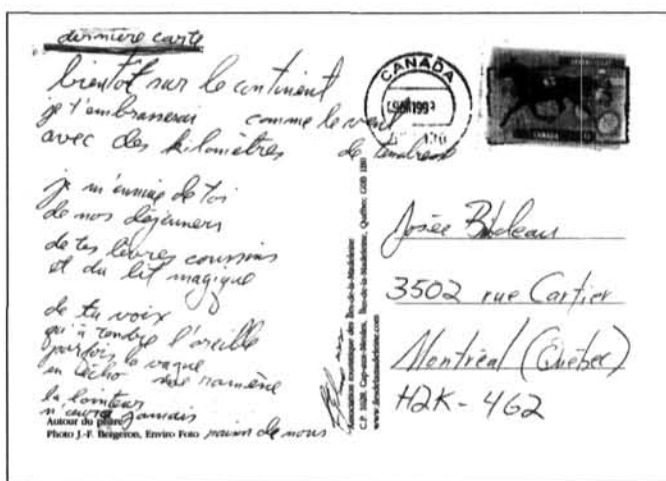 dernière carte
bientôt sur le continent
je t'embrasserai comme le vent
avec des kilomètres de tendresse
je m'ennuie de toi
de nos déjeuners
de tes lèvres coussins
et du lit magique
de ta voix
qu'à tendre l'oreille
parfois la vague
en écho me ramène
la lointeur
n'aura jamais
raison de nous
Autour du phare
Photo J.-F. Bergeron, Enviro Foto
Association touristique des Îles-de-la-Madeleine
C.P. 1028, Cap-aux-Meules, Îles-de-la-Madeleine, Québec G0B 1B0
www.ilesdelamadeleine.com
CANADA
CANADA
Josée Bilodeau
3502 rue Cartier
Montréal (Québec)
H2K-4G2